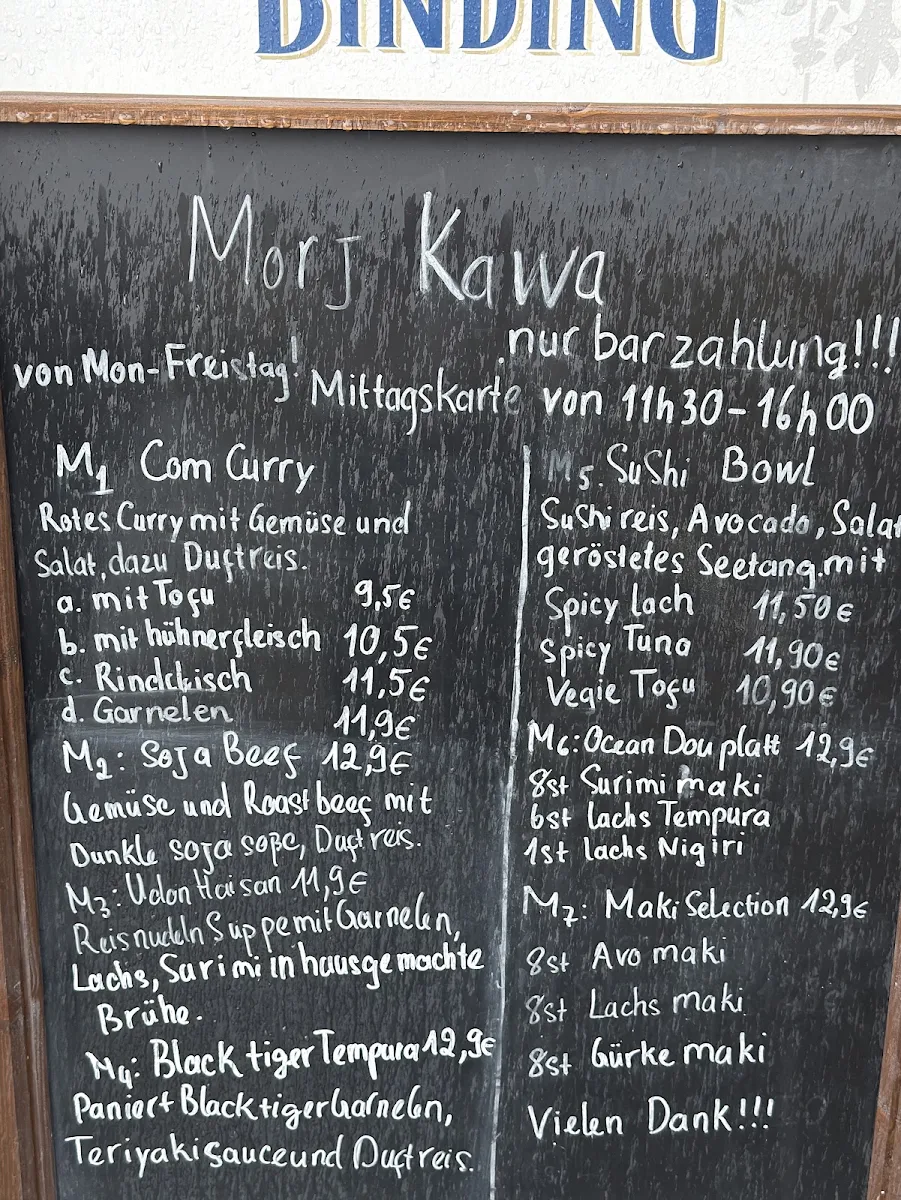 BINDING
Morj Kawa
nur barzahlung!!!
von Mon-Freistag!
Mittagskarte von 11h30-16h00
M1 Com Curry
Rotes Curry mit Gemüse und
Salat, dazu Duftreis.
a. mit Tofu 9,5€
b. mit hühnerfleisch 10,5€
c. Rindfleisch 11,5€
d. Garnelen 11,9€
M2: Soja Beef 12,9€
Gemüse und Roastbeef mit
Dunkle soja soße, Duftreis.
M3: Udon Hai san 11,9€
Reisnudeln Suppe mit Garnelen,
Lachs, Surimi in hausgemachte
Brühe.
M4: Black tiger Tempura 12,9€
Paniert Black tiger Garnelen,
Teriyaki sauce und Duftreis.
M5. Sushi Bowl
Sushi reis, Avocado, Salat
geröstetes Seetang. mit
Spicy Lach 11,50€
Spicy Tuna 11,90€
Vegie Tofu 10,90€
M6: Ocean Dou platt 12,9€
8st Surimi maki
6st lachs Tempura
1st lachs Nigiri
M7: Maki Selection 12,9€
8st Avo maki
8st Lachs maki
8st Gürke maki
Vielen Dank!!!